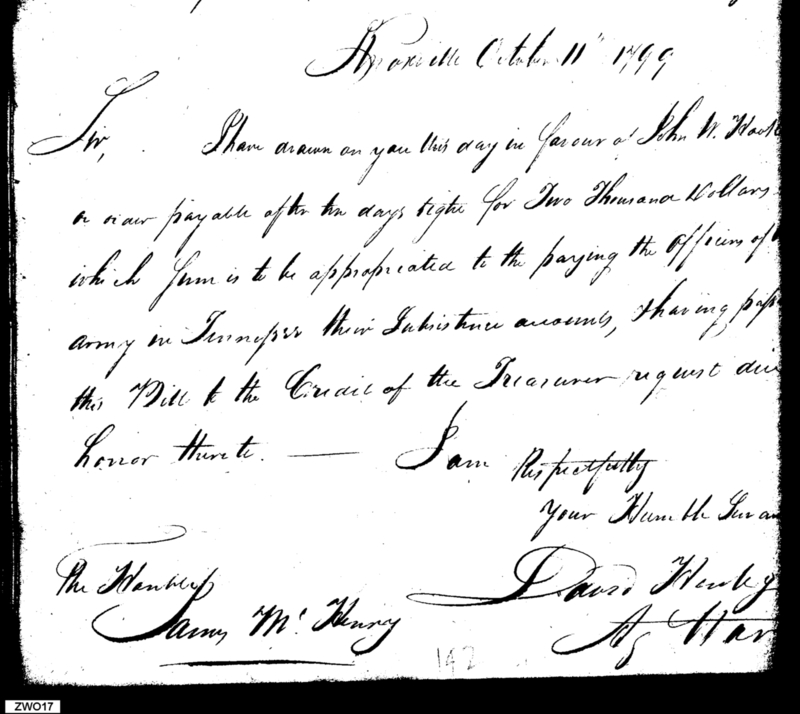 Knoxville October 11th 1799
Sir, I have drawn on you this day in favour of John W. Hook
or order payable after ten days sight for Two Thousand Dollars
which sum is to be appropriated to the paying the officers of
army in Tennessee their Subsistence accounts, & having pass
this Bill to the Credit of the Treasurer request due
honor thereto.
I am Respectfully
Your Humble Servan
The Honble
James McHenry
David Henley
Ag War
142
ZWO17